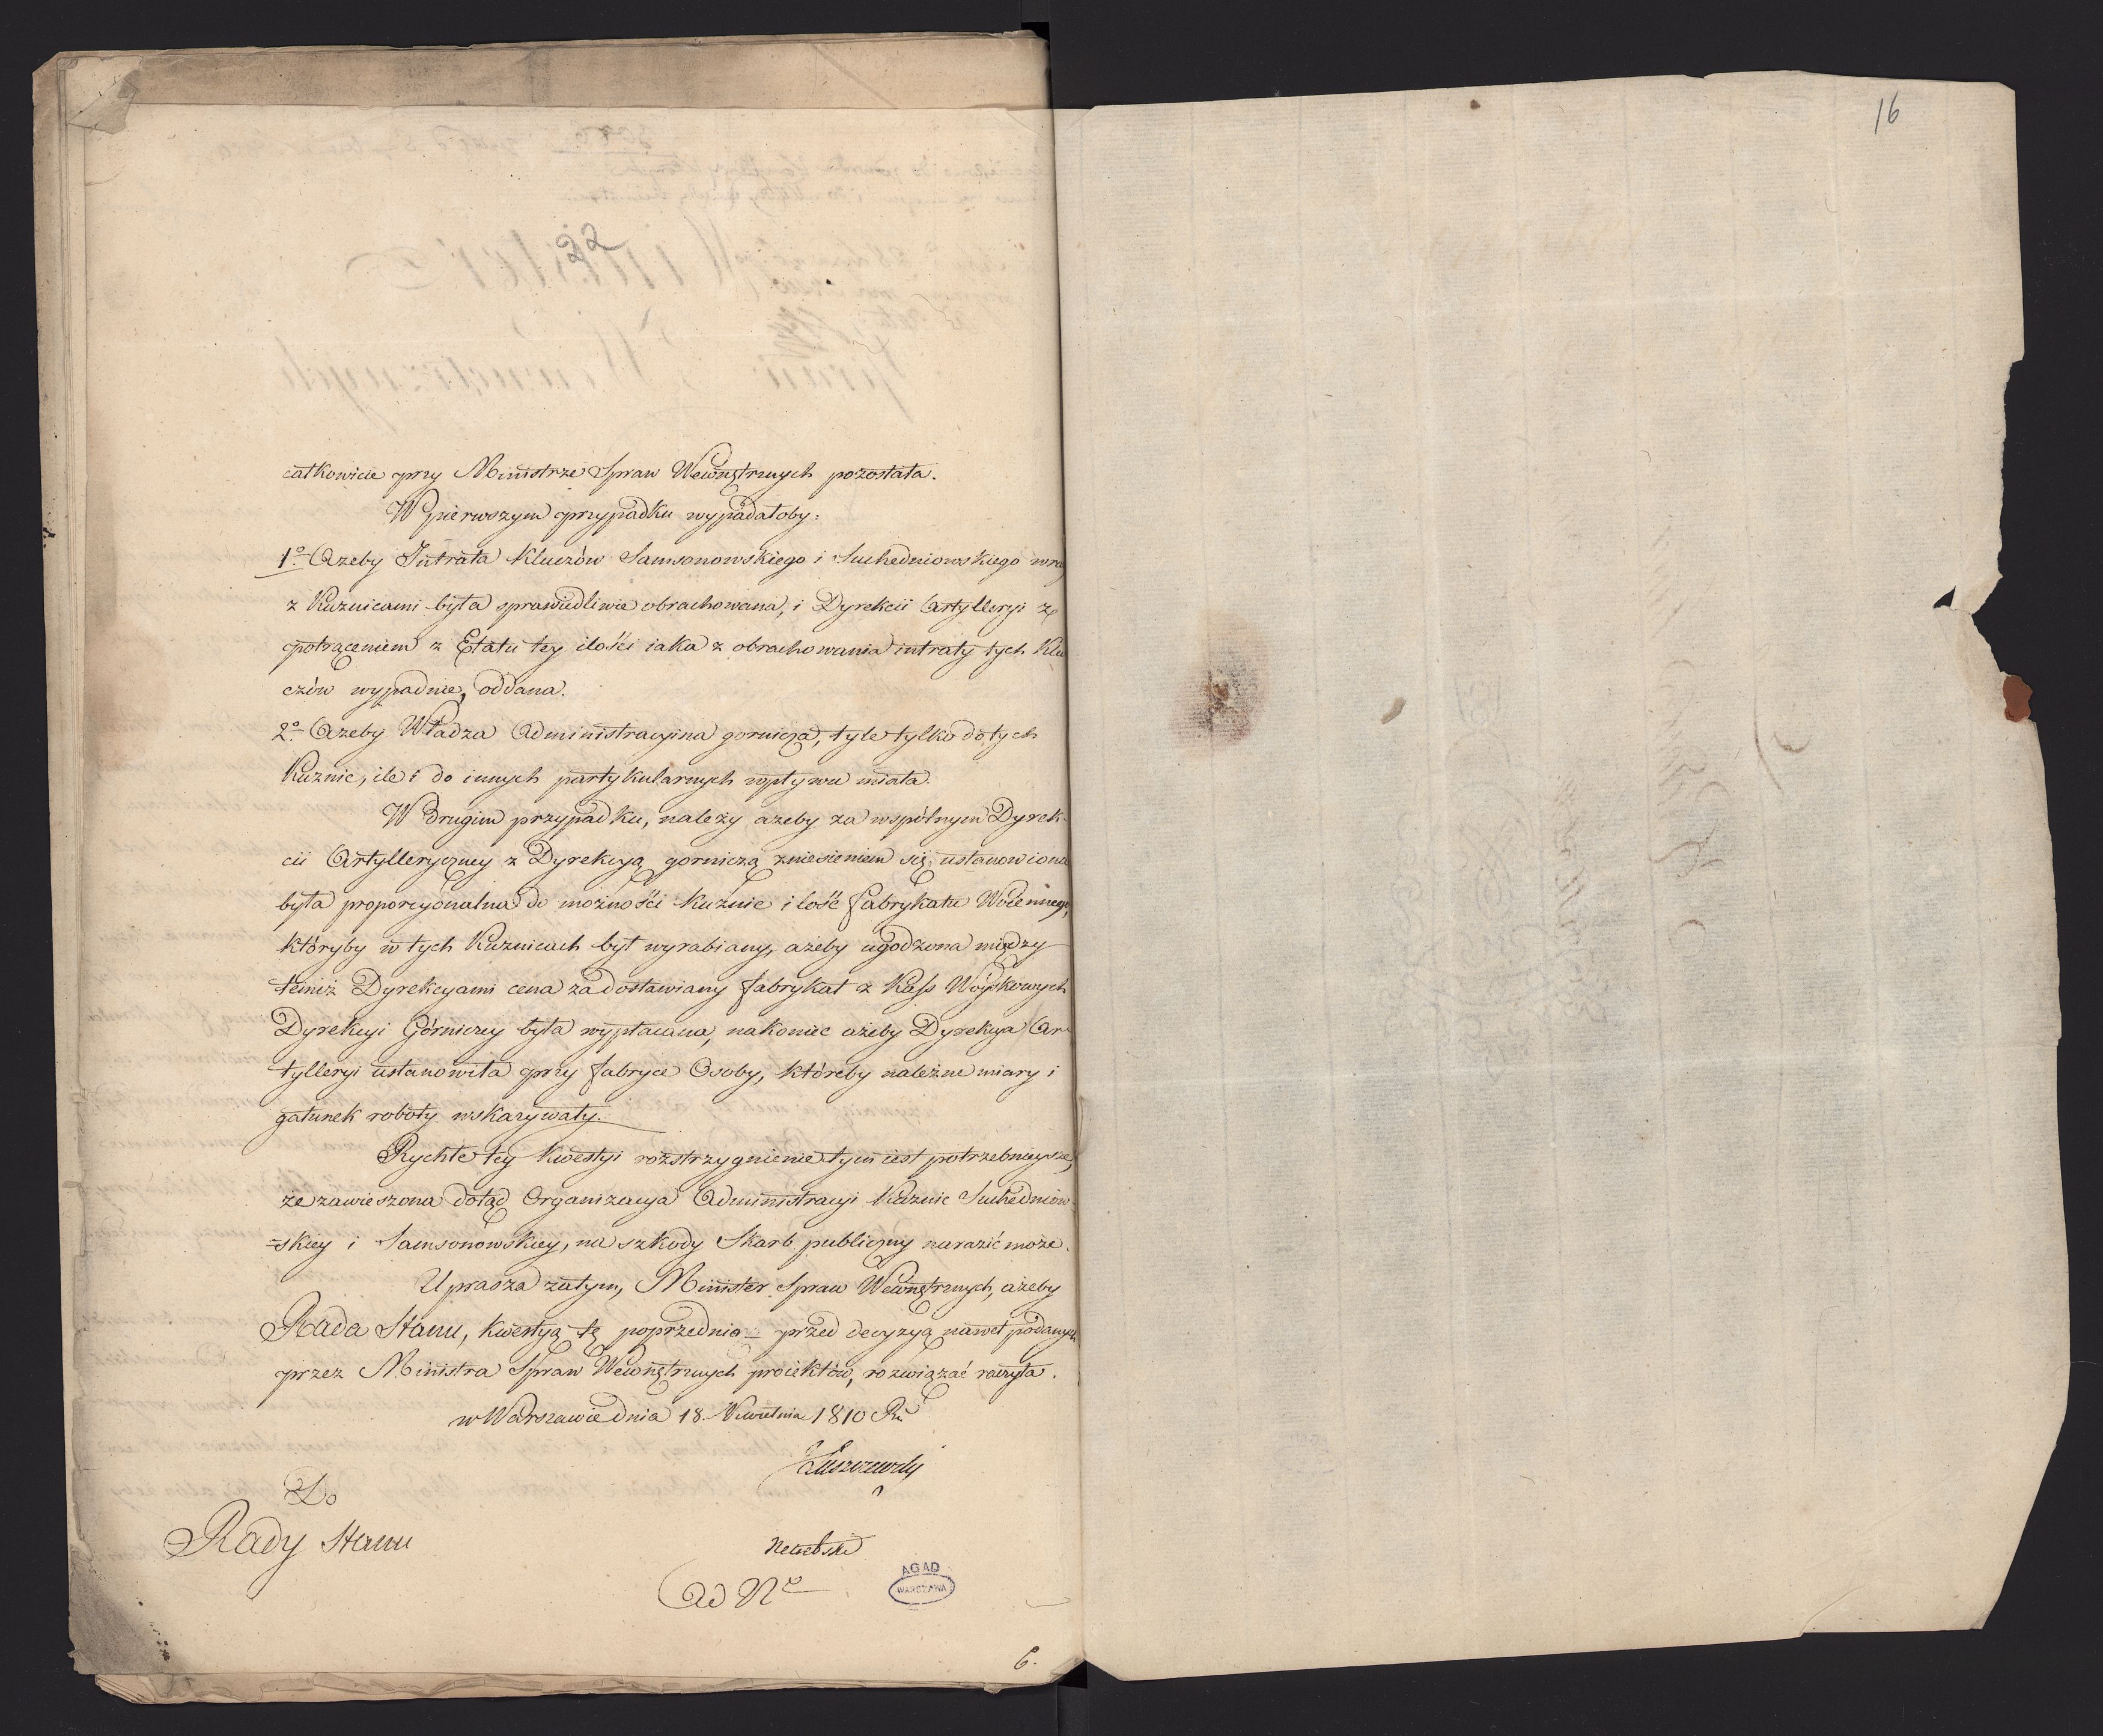 22
całkowicie przy Ministrze Spraw Wewnętrznych pozostała.
W pierwszym przypadku wypadałoby:
1º Ażeby Intrata Kluczów Samsonowskiego i Suchedniowskiego wraz
z Kuznicami była sprawiedliwie obrachowana, i Dyrekcii Artylleryi za
potrąceniem z Etatu tey ilości iaka z obrachowania intraty tych Klu
czów wypadnie, oddana.
2º Ażeby Władza Administracyina gornicza, tyle tylko do tych
Kuznic, ile i do innych partykularnych wpływu miała.
W drugim przypadku, należy ażeby za wspólnym Dyrek-
cii Artylleryczney z Dyrekcyą gorniczą zniesieniem się, ustanowiona
była proporcyonalna do możności Kuźnic ilość fabrykatu Woiennego,
któryby w tych Kuznicach był wyrabiany, ażeby ugodzona między
temiż Dyrekcyami cena za dostawiany fabrykat z Kass Woyskowych
Dyrekcyi Górniczey była wypłacana, nakoniec ażeby Dyrekcya Ar
tylleryi ustanowiła przy fabryce Osoby, któreby należne miary i
gatunek roboty wskazywały.
Rychłe tey Kwestyi rozstrzygnienie tym iest potrzebnieysze,
że zawieszona dotąd Organizacya Administracyi Kuznic Suchedniow
-skiey i Samsonowskiey, na szkody Skarb publiczny narazić może.
Uprasza zatym, Minister Spraw Wewnętrznych, ażeby
Rada Stanu, Kwestyą tę poprzednio przed decyzyą nawet podanych
przez Ministra Spraw Wewnętrznych proiektów, rozwiązać raczyła.
w Warszawie dnia 18. Kwietnia 1810 Ru
Łuszczewski
Do
Rady Stanu
Ad Nº
AGAD
WARSZAWA
6.
16